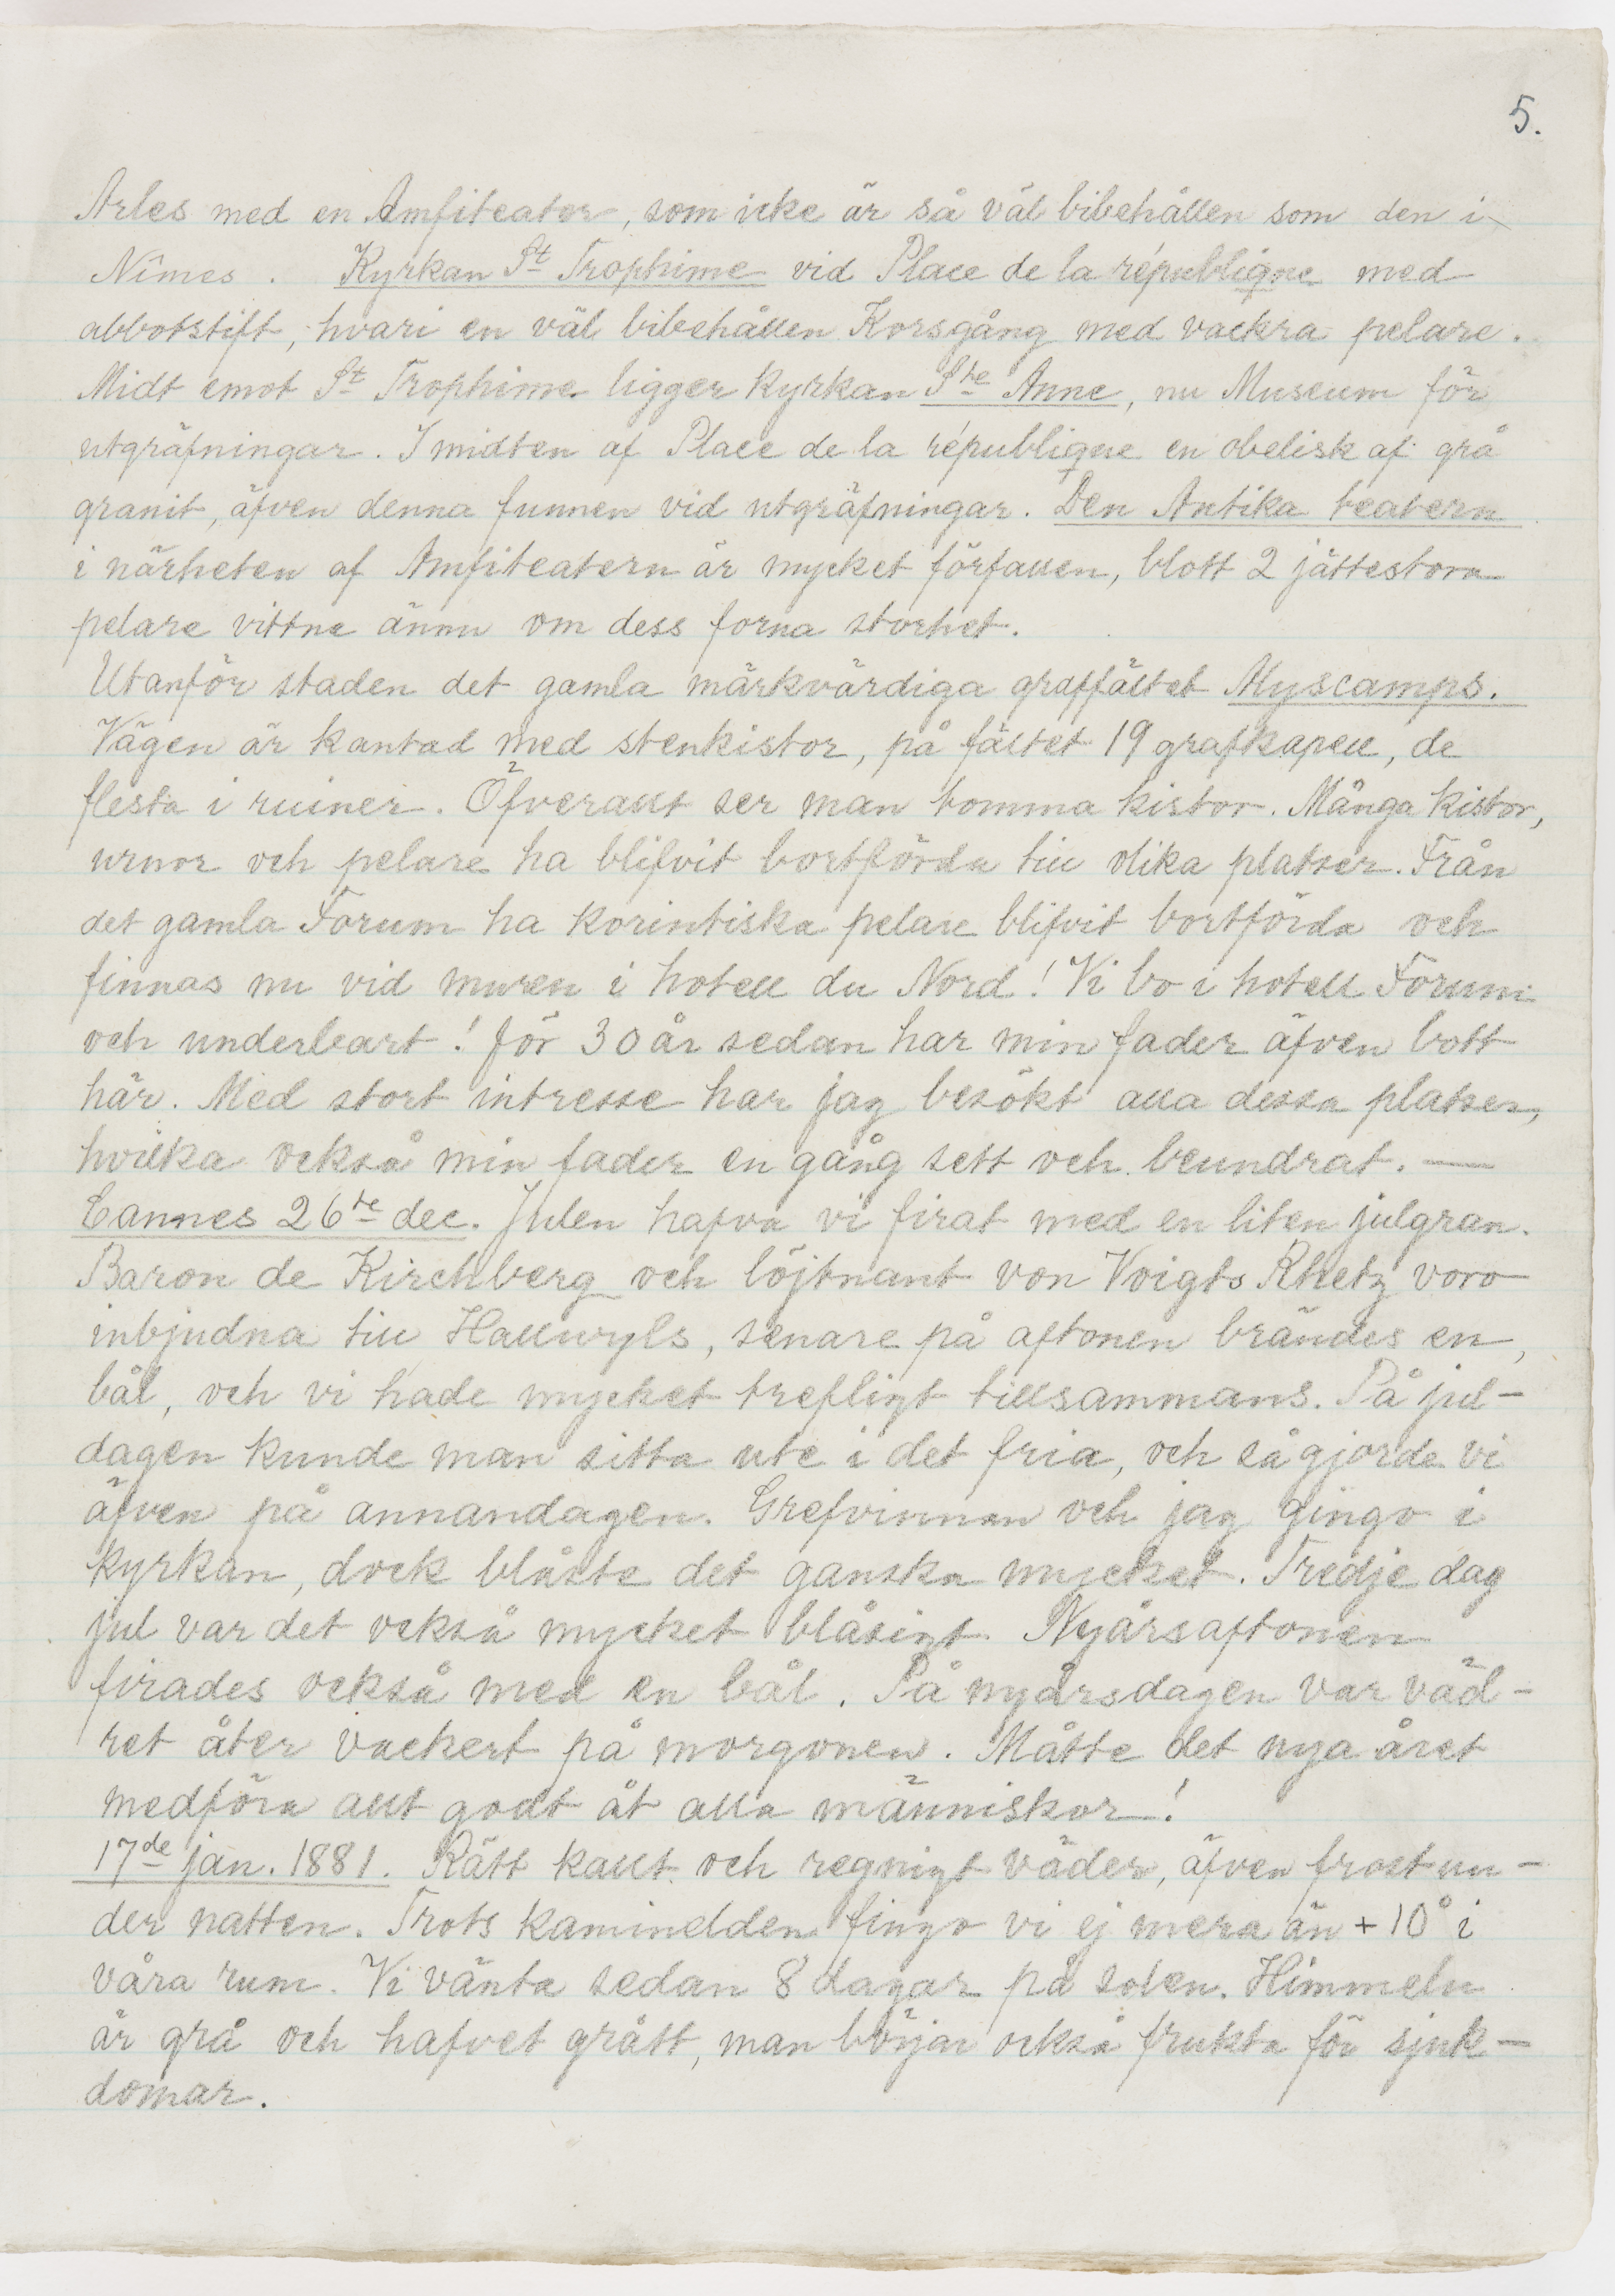 5.
Arles med en Amfiteater, som icke är så väl bibehållen som den i
Nîmes. Kyrkan St Trophime vid Place de la république med
abbotstift, hvari en väl bibehållen Korsgång med vackra pelare.
Midt emot St Trophime ligger kyrkan Ste Anne, nu Museum för
utgräfningar. I midten af Place de la république en obelisk af grå
granit, äfven denna funnen vid utgräfningar. Den Antika teatern
i närheten af Amfiteatern är mycket förfallen, blott 2 jättestora
pelare vittne ännu om dess forna storhet.
Utanför staden det gamla märkvärdiga graffältet Alyscamps.
Vägen är kantad med stenkistor, på fältet 19 grafkapell, de
flesta i ruiner. Öfverallt ser man tomma kistor. Många kistor,
urnor och pelare ha blifvit bortförda till olika platser. Från
det gamla Forum ha korintiska pelare blifvit bortförda och
finnas nu vid muren i hotell du Nord! Vi bo i hotell Forum
och underbart! för 30 år sedan har min fader äfven bott
här. Med stort intresse har jag besökt alla dessa platser,
hvilka också min fader en gång sett och beundrat. —
Cannes 26te dec. Julen hafva vi firat med en liten julgran.
Baron de Kirchberg och löjtnant von Voigts Rhetz voro
inbjudna till Hallwyls, senare på aftonen brändes en
bål, och vi hade mycket trefligt tillsammans. På jul-
dagen kunde man sitta ute i det fria, och så gjorde vi
äfven på annandagen. Grefvinnan och jag gingo i
kyrkan, dock blåste det ganska mycket. Tredje dag
jul var det också mycket blåsigt. Nyårsaftonen
firades också med en bål. På nyårsdagen var väd-
ret åter vackert på morgonen. Måtte det nya året
medföra allt godt åt alla människor!
17de jan. 1881. Rätt kallt och regnigt väder, äfven frost un-
der natten. Trots kaminelden fingo vi ej mera än + 10° i
våra rum. Vi vänta sedan 8 dagar på solen. Himmeln
är grå och hafvet grått, man börjar också frukta för sjuk-
domar.